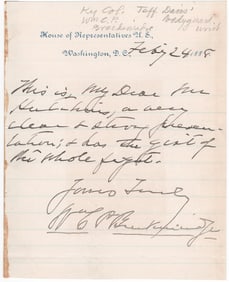 Ky Col. Jeff Davis'
Wm C.P. Bodyguard
Breckinridge
House of Representatives U.S.,
Washington, D.C. Feby 24 1888
This is, My Dear Mr
a very
clear & strong presen-
tation; & has the gist of
the whole fight.
Yours Truly
Wm C P Breckinridge